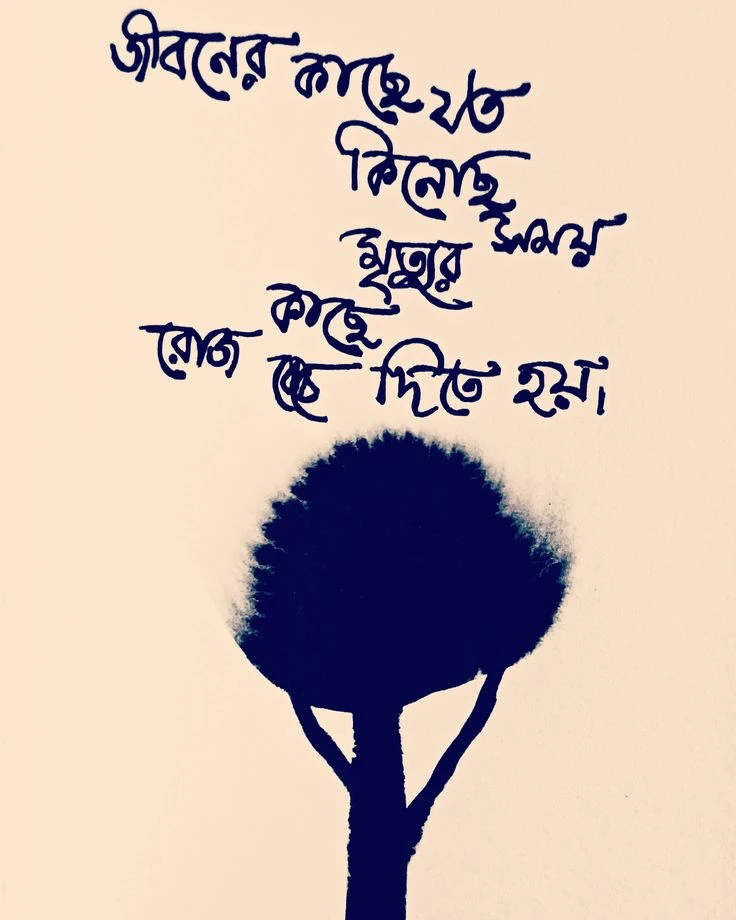 জীবনের কাছে যত
কিনেছি সময়
মৃত্যুর
কাছে
রোজ বেচে দিতে হয়।